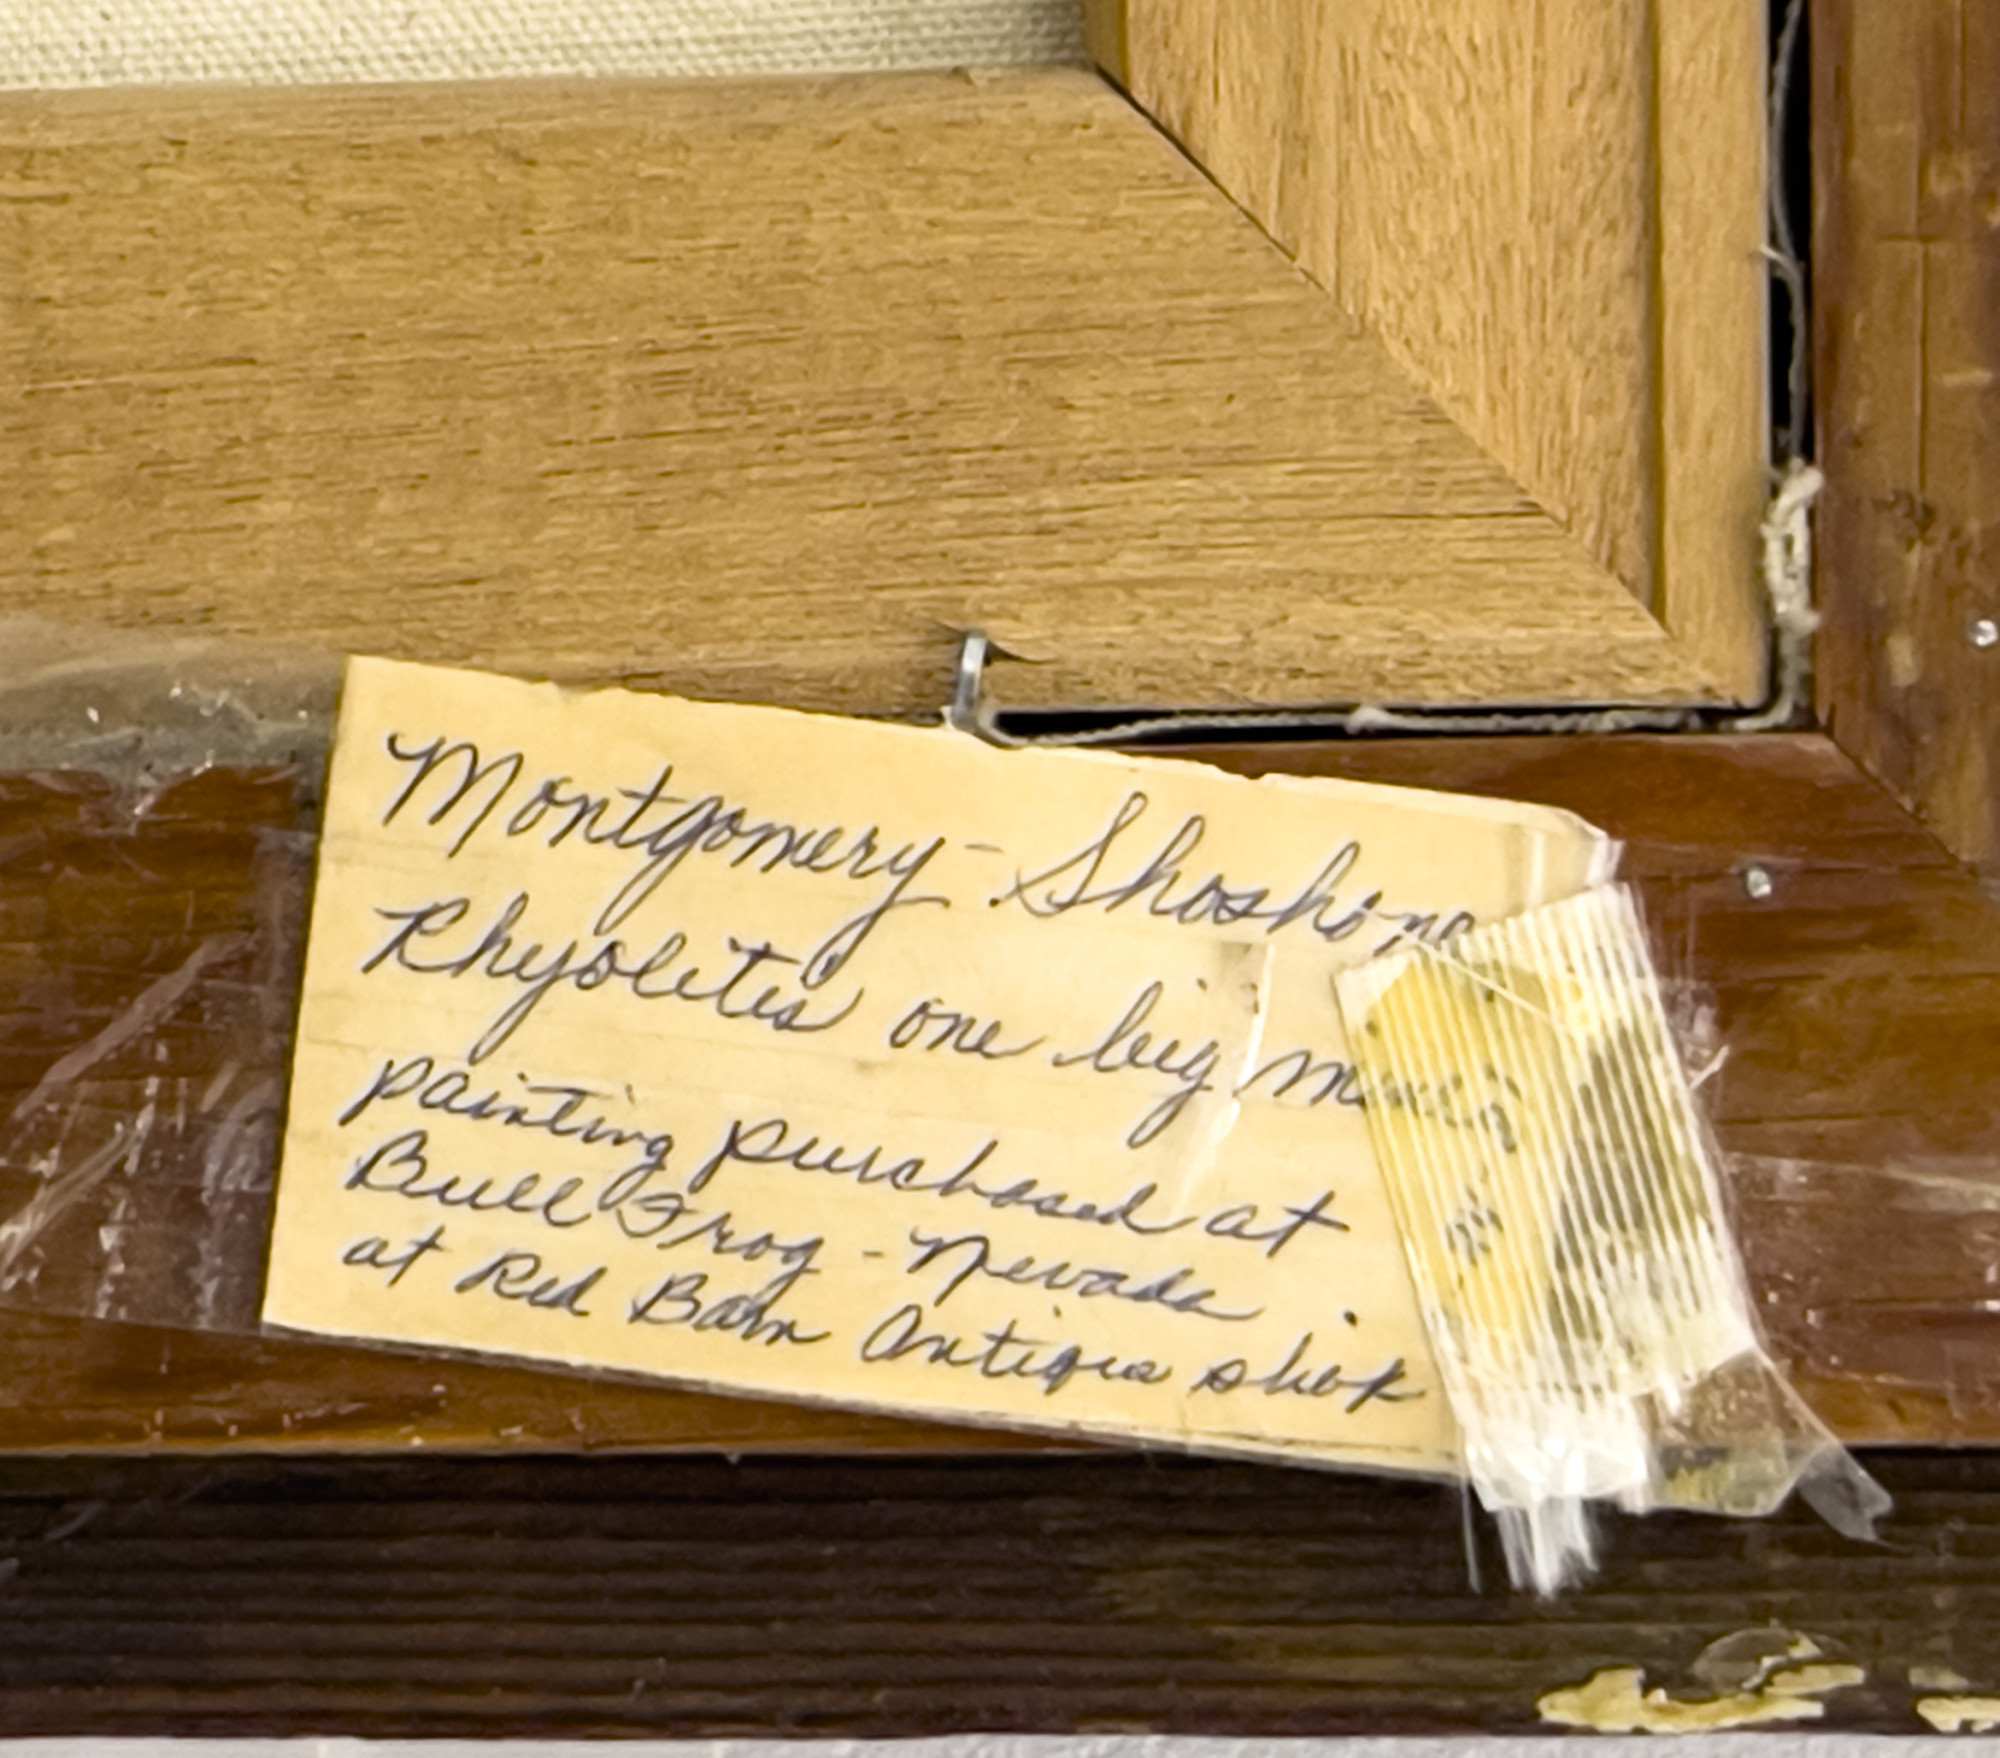 Montgomery - Shoshone
Rhyolites one big
painting purchased at
Bull Frog - Nevada
at Red Barn Antiques shop